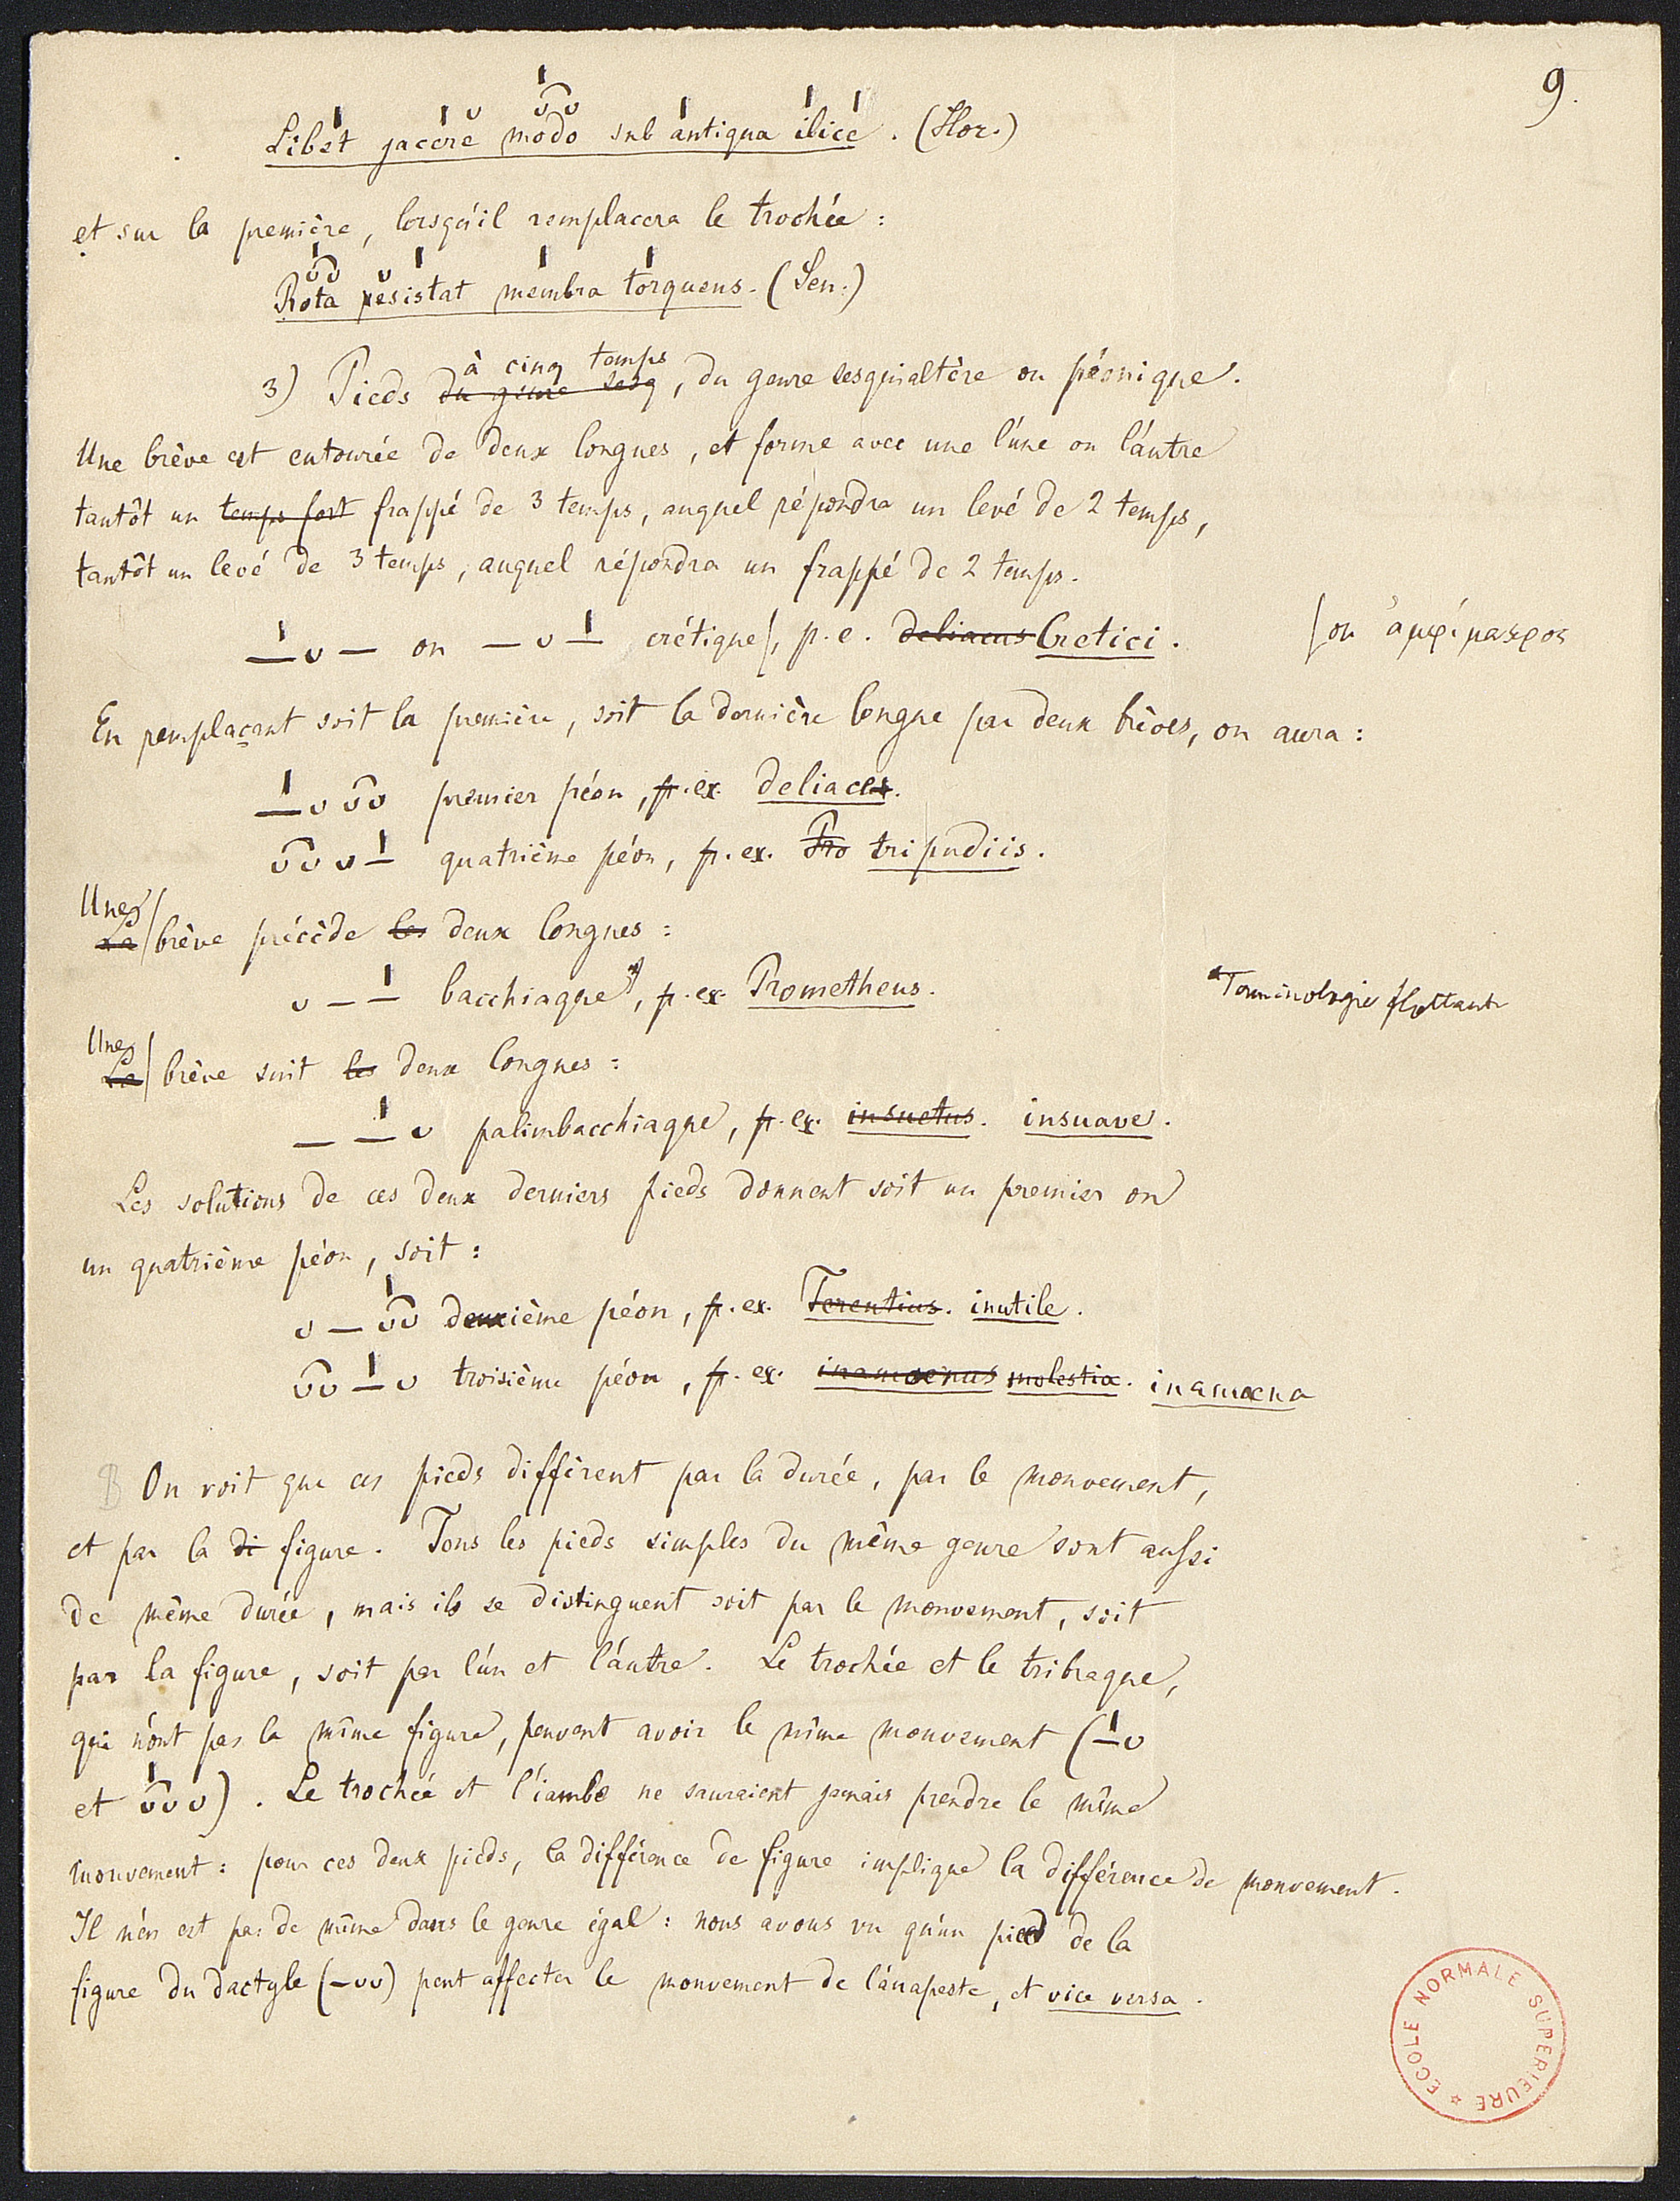 9.
Libet jacere modo sub antiqua ilice. (Hor.)
et sur la première, lorsqu'il remplacera le trochée :
Rota resistat membra torquens. (Sen.)
à cinq temps
3) Pieds du genre sesq, du genre sesquialtère ou péonique.
Une brève est entourée de deux longues, et forme avec une l'une ou l'autre
tantôt un temps fort frappé de 3 temps, auquel répondra un levé de 2 temps,
tantôt un levé de 3 temps, auquel répondra un frappé de 2 temps.
– ᴗ – ou – ᴗ – crétique, p. e. deliacus Cretici. ou ἀμφίμακρος
En remplaçant soit la première, soit la dernière longue par deux brèves, on aura :
– ᴗ ᴗᴗ premier péon, p. ex. deliaces.
ᴗᴗ ᴗ – quatrième péon, p. ex. Pro tripudiis.
Une
La brève précède les deux longues :
ᴗ – – bacchiaque*, p. ex. Prometheus. *Terminologie flottante
Une
La brève suit les deux longues :
– – ᴗ palimbacchiaque, p. ex. insuetus. insuave.
Les solutions de ces deux derniers pieds donnent soit un premier ou
un quatrième péon, soit :
ᴗ – ᴗᴗ deuxième péon, p. ex. Terentius. inutile.
ᴗᴗ – ᴗ troisième péon, p. ex. inamoenus molestia. inamœna
On voit que ces pieds diffèrent par la durée, par le mouvement,
et par la di figure. Tous les pieds simples du même genre sont aussi
de même durée, mais ils se distinguent soit par le mouvement, soit
par la figure, soit par l'un et l'autre. Le trochée et le tribraque,
qui n'ont pas la même figure, peuvent avoir le même mouvement (– ᴗ
et ᴗᴗ ᴗ). Le trochée et l'iambe ne sauraient jamais prendre le même
mouvement : pour ces deux pieds, la différence de figure implique la différence de mouvement.
Il n'en est pas de même dans le genre égal : nous avons vu qu'un pied de la
figure du dactyle (–ᴗᴗ) peut affecter le mouvement de l'anapeste, et vice versa.
ECOLE NORMALE SUPERIEURE